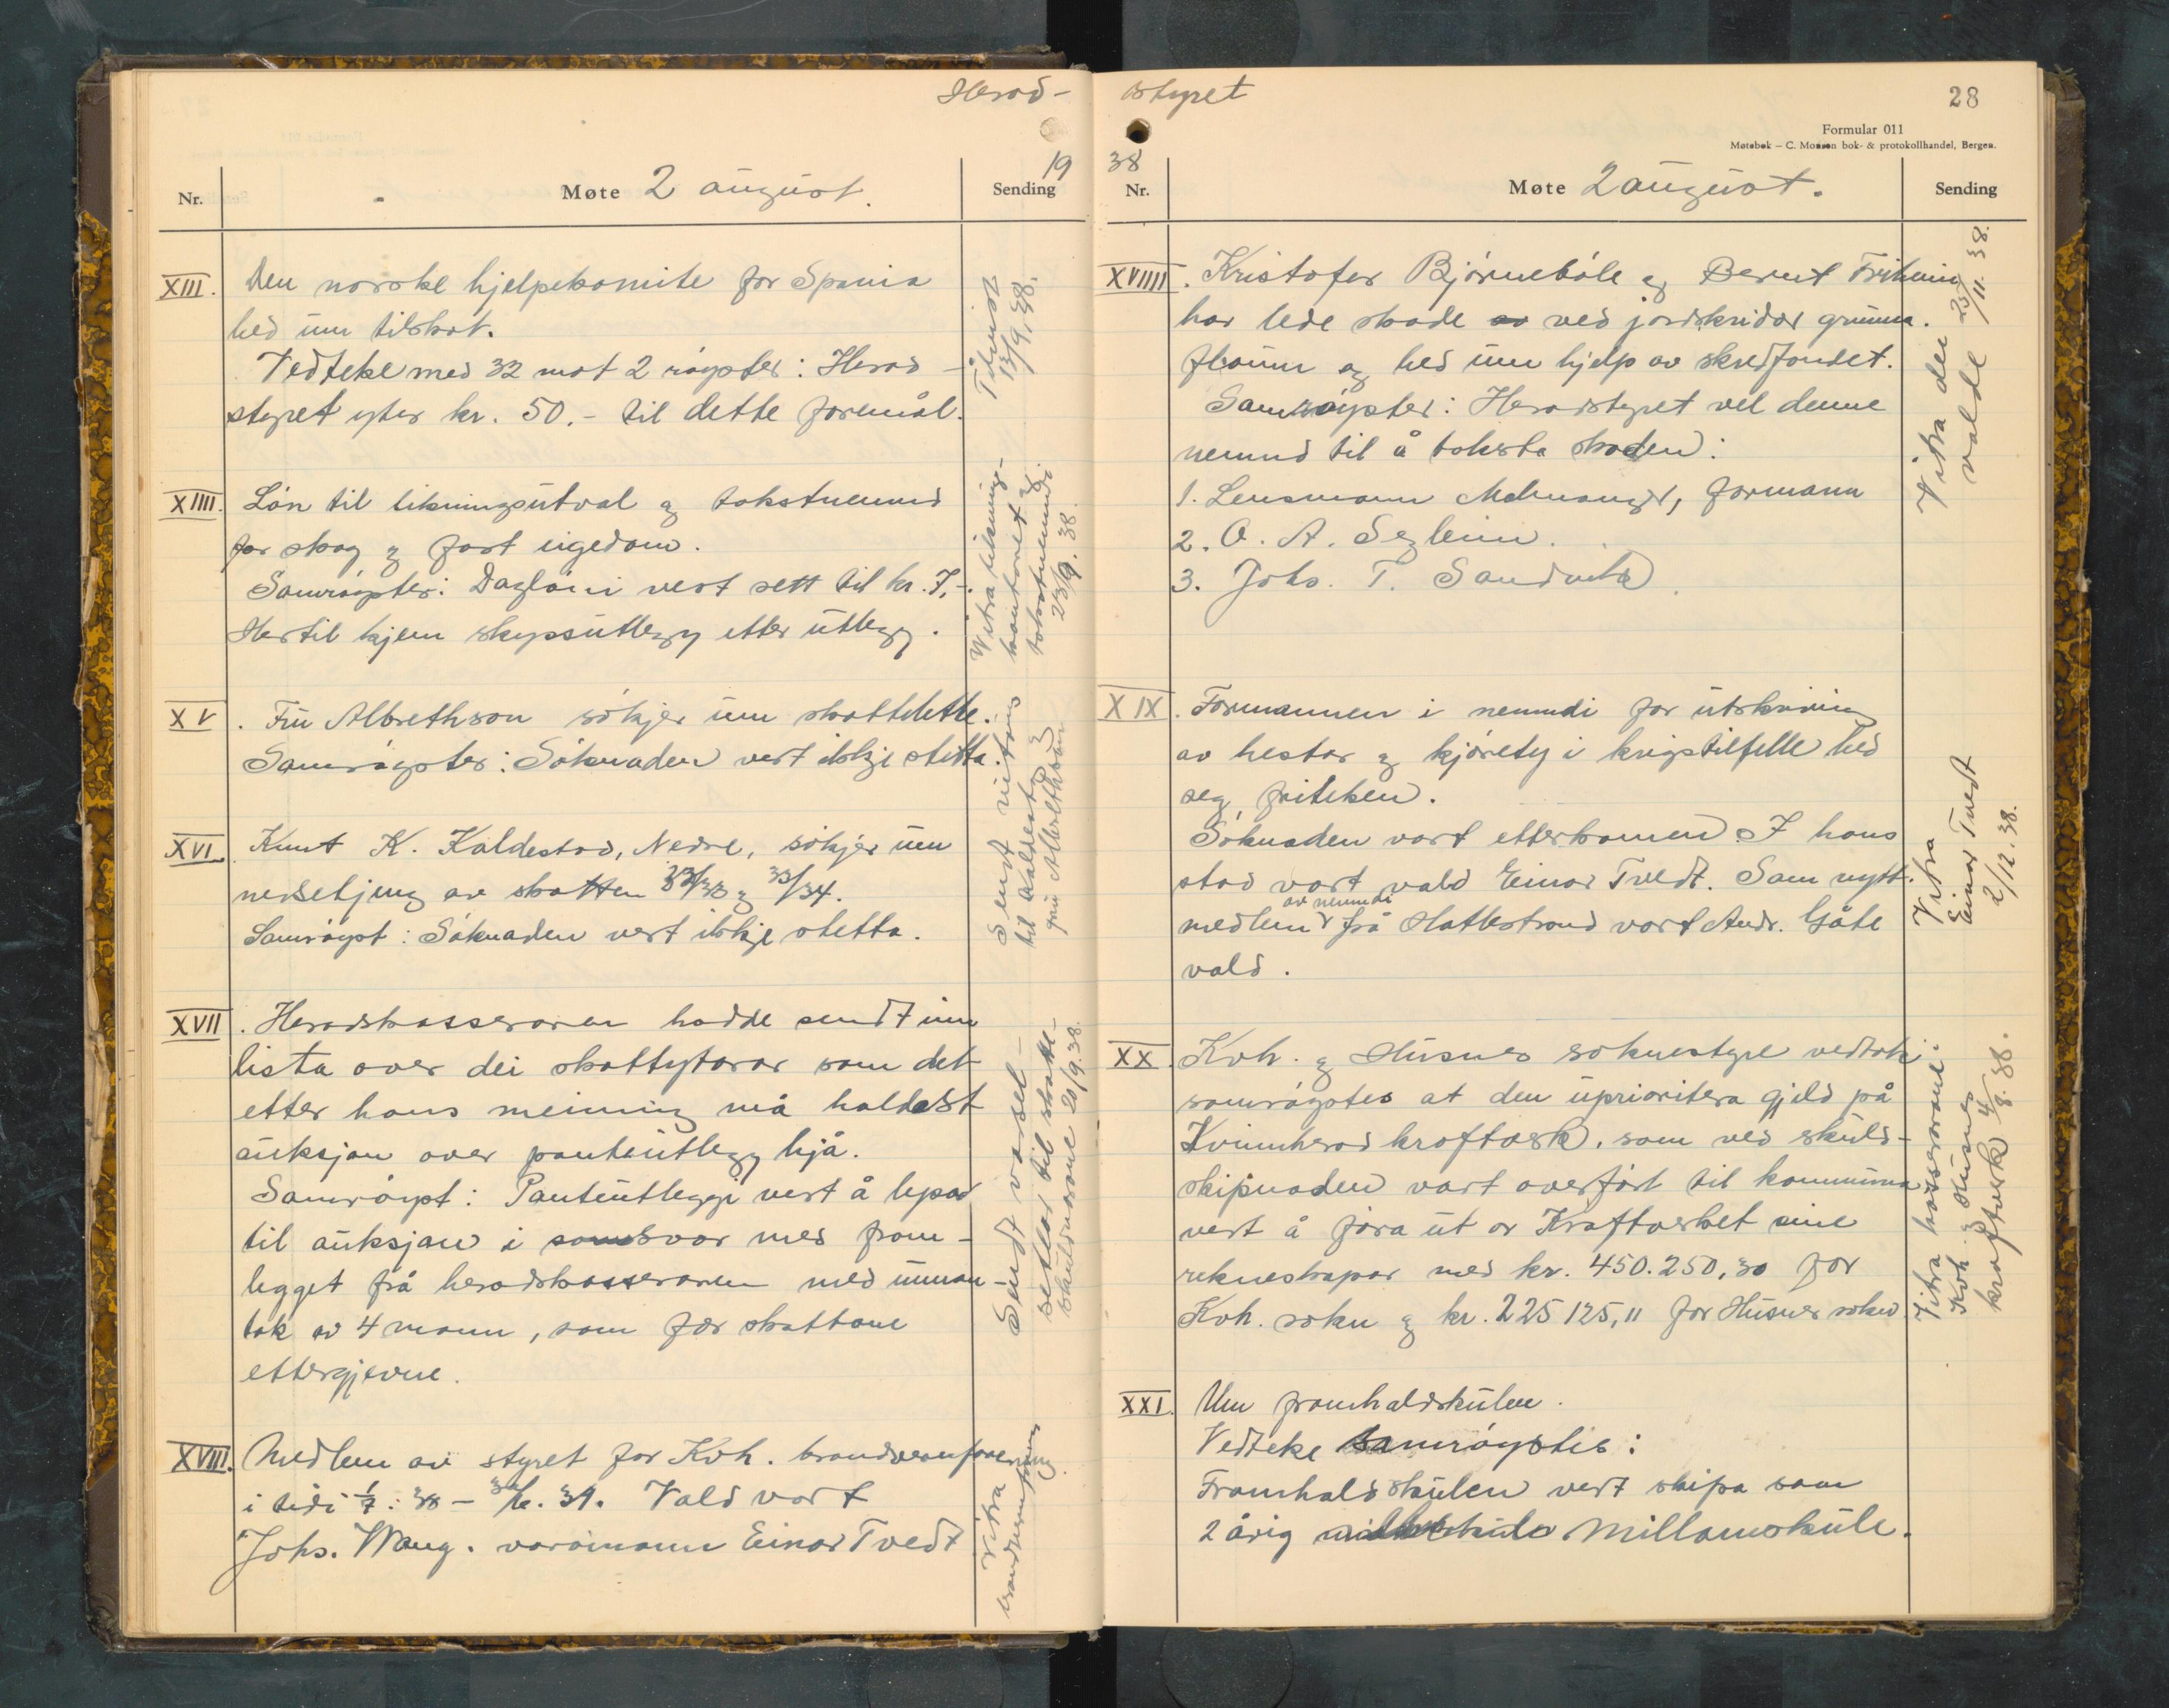 Herad-
19
Nr.
Møte 2 august.
Sending
XIII. Den norske hjelpekomite for Spania
bed um tilskot.
Vedteke med 32 mot 2 røyster: Herad-
styret yter kr. 50.- til dette formål.
Tilvist
13/9.38.
XIIII. Løn til likningsutval og takstnemnd
for skog og fast eigedom.
Samrøystes: Dagløni vert sett til kr. 7,-.
Hertil kjem skyssutlegg etter utlegg.
Vitra liknings-
kontoret og
takstnemndi
23/9.38.
XV. Fru Albrethson søkjer um skattelette.
Samrøystes: Søknaden vert ikkje stetta.
XVI. Knut K. Kaldestad, Nedre, søkjer um
nedsetjing av skatten 32/33 og 33/34.
Samrøyst: Søknaden vert ikkje stetta.
Sendt
til Kaldestad og
fru Albrethson
XVII. Heradskasseraren hadde sendt inn
lista over dei skattytarar som det
etter hans meining må haldast
auksjon over panteutlegg hjå.
Samrøyst: Panteutleggi vert å lysa
til auksjon i samsvar med fram-
legget frå heradskasseraren med unnan-
tak av 4 mann, som fær skattane
ettergjevne.
Sendt varsel-
setlar til skatte-
skuldnarane 20/9.38.
XVIII. Medlem av styret for Kvh. brandvernforening
i tidi 1/7: 38 - 30/6. 39. Vald vart
Johs. Waag. varamann Einar Tvedt
Vitra
brandvernforening
styret
28
Formular 011
Møtebok – C. Monsen bok- & protokollhandel, Bergen.
38
Nr.
Møte 2 august.
Sending
XVIIII. Kristofer Bjørnebøle og Bernt Triheim
har lede skade ved jordskridor grunna
flaum og bed um hjelp av skredfondet.
Samrøystes: Heradstyret vel denne
nemnd til å taksta skaden:
1. Lensmann Melmanger, formann
2. O. A. Seglem.
3. Johs. T. Sandvik
Vitra dei
valde 23/11.38.
XIX. Formannen i nemndi for utskriving
av hestar og kjørety i krigstilfelle bed
seg friteken.
Søknaden vart etterkomen. I hans
stad vart vald Einar Tvedt. Som nytt
av nemndi
medlem frå Hatlestrand vart Andr. Gåte
vald.
Vitra
Einar Tvedt
2/12.38.
XX. Kvh. og Husnes soknestyre vedtok
samrøystes at den uprioritera gjeld på
Kvinnherad kraftverk, som ved skuld-
skipnaden vart overført til kommuna
vert å føra ut or Kraftverket sine
rekneskapar med kr. 450.250,30 for
Kvh. sokn og kr. 225 125,11 for Husnes sokn
Vitra kasserarane
Kvh. og Husnes
kraftverk 4/8.38.
XXI. Um framhaldskulen.
Vedteke samrøystes:
Framhaldskulen vert skipa som
2 årig millomskule.